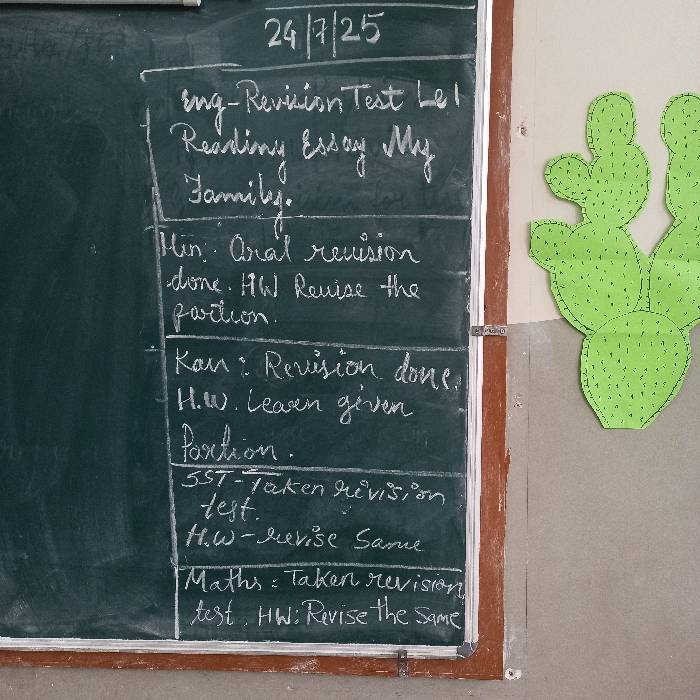 24/7/25
eng-Revision Test Le1
Reading Essay My
Family.
Hin: Oral revision
done. HW Revise the
portion.
Kan : Revision done.
H.W. Learn given
Portion.
SST-Taken revision
test.
H.W-revise Same
Maths : Taken revision
test. HW: Revise the Same